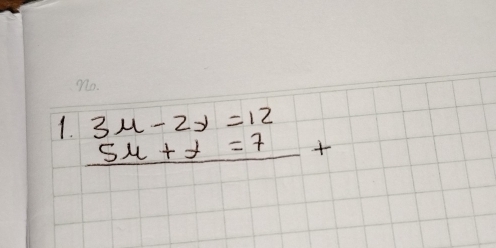 No.
1. 3x - 2y = 12
5x + y = 7 +